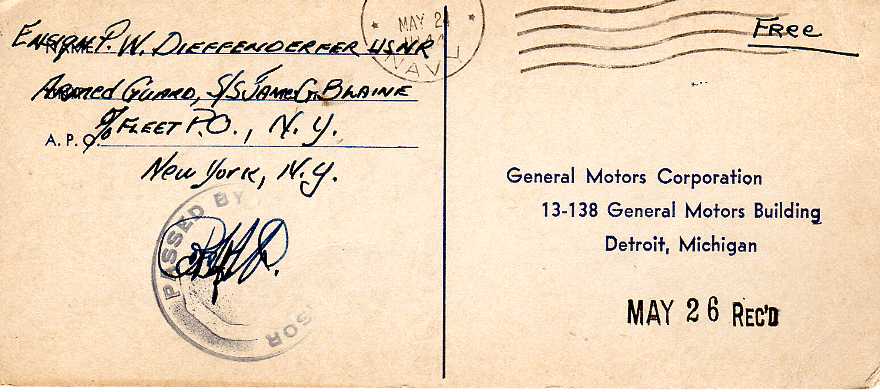 ENSIGN P. W. DIEFFENDERFER USNR
ARMED GUARD, S/S JAMES G. BLAINE
A. P. O. c/o FLEET P.O., N. Y.
NEW YORK, N. Y.
PASSED BY
MAY 2
NAVY
FREE
General Motors Corporation
13-138 General Motors Building
Detroit, Michigan
MAY 26 REC'D